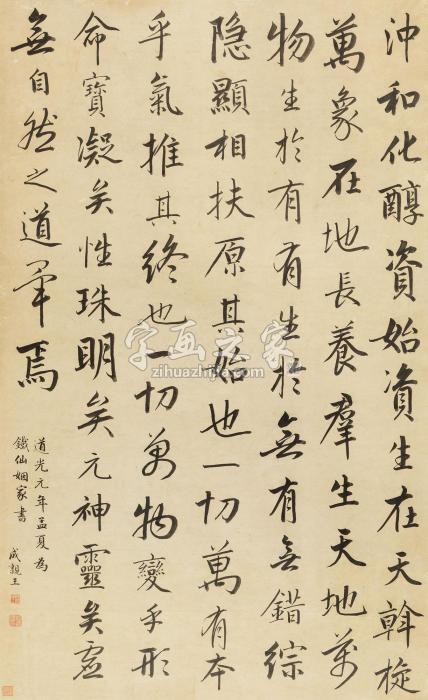 沖和化醇資始資生在天斡旋
萬象在地長養羣生天地萬
物生於有有生於無有無錯綜
隱顯相扶原其始也一切萬有本
乎氣推其終也一切萬物變乎形
命寶凝矣性珠明矣元神靈矣虛
無自然之道畢焉
道光元年孟夏為
鐵仙姻家書
成親王
字画之家
zihuazhijia.com